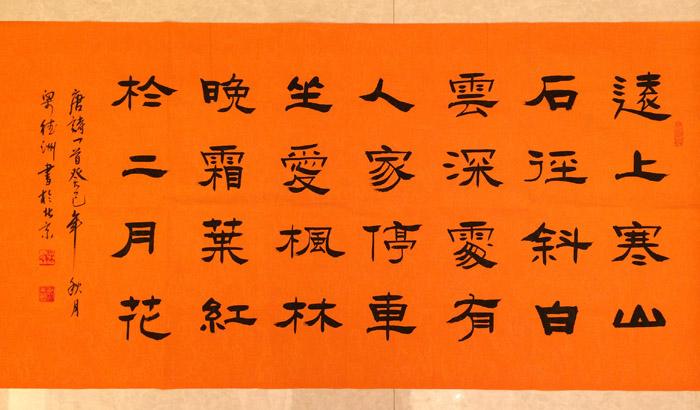 遠上寒山
石徑斜白
雲深處有
人家停車
坐愛楓林
晚霜葉紅
於二月花
唐詩一首癸巳年 秋月
德洲書於北京